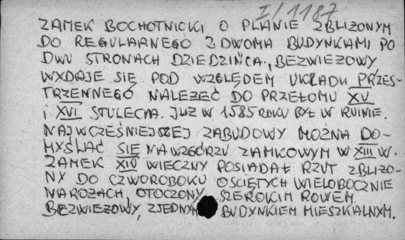 I/1187
ZAMEK BOCHOTNICKI O PLANIE ZBLIZONYM
DO REGULARNEGO Z DWOMA BUDYNKAMI PO
DWU STRONACH DZIEDZIŃCA, BEZWIEZOWY
WYDAJE SIĘ POD WZGLĘDEM UKŁADU PRZES-
TRZENNEGO NALEZEĆ DO PRZEŁOMU XV
I XVI STULECIA. JUZ W 1585 ROKU BYŁ W RUINIE.
NAJWCZEŚNIEJSZEJ ZABUDOWY MOŻNA DO-
MYŚLAĆ SIĘ NA WZGÓRZU ZAMKOWYM W XIII W.
ZAMEK XIV WIECZNY POSIADAŁ RZUT ZBLIZO-
NY DO CZWOROBOKU OSCIĘTYCH WIELOBOCZNIE
NAROZACH, OTOCZONY SZEROKIM ROWEM
BEZWIEZOWY Z JEDNYM BUDYNKIEM MIESZKALNYM.